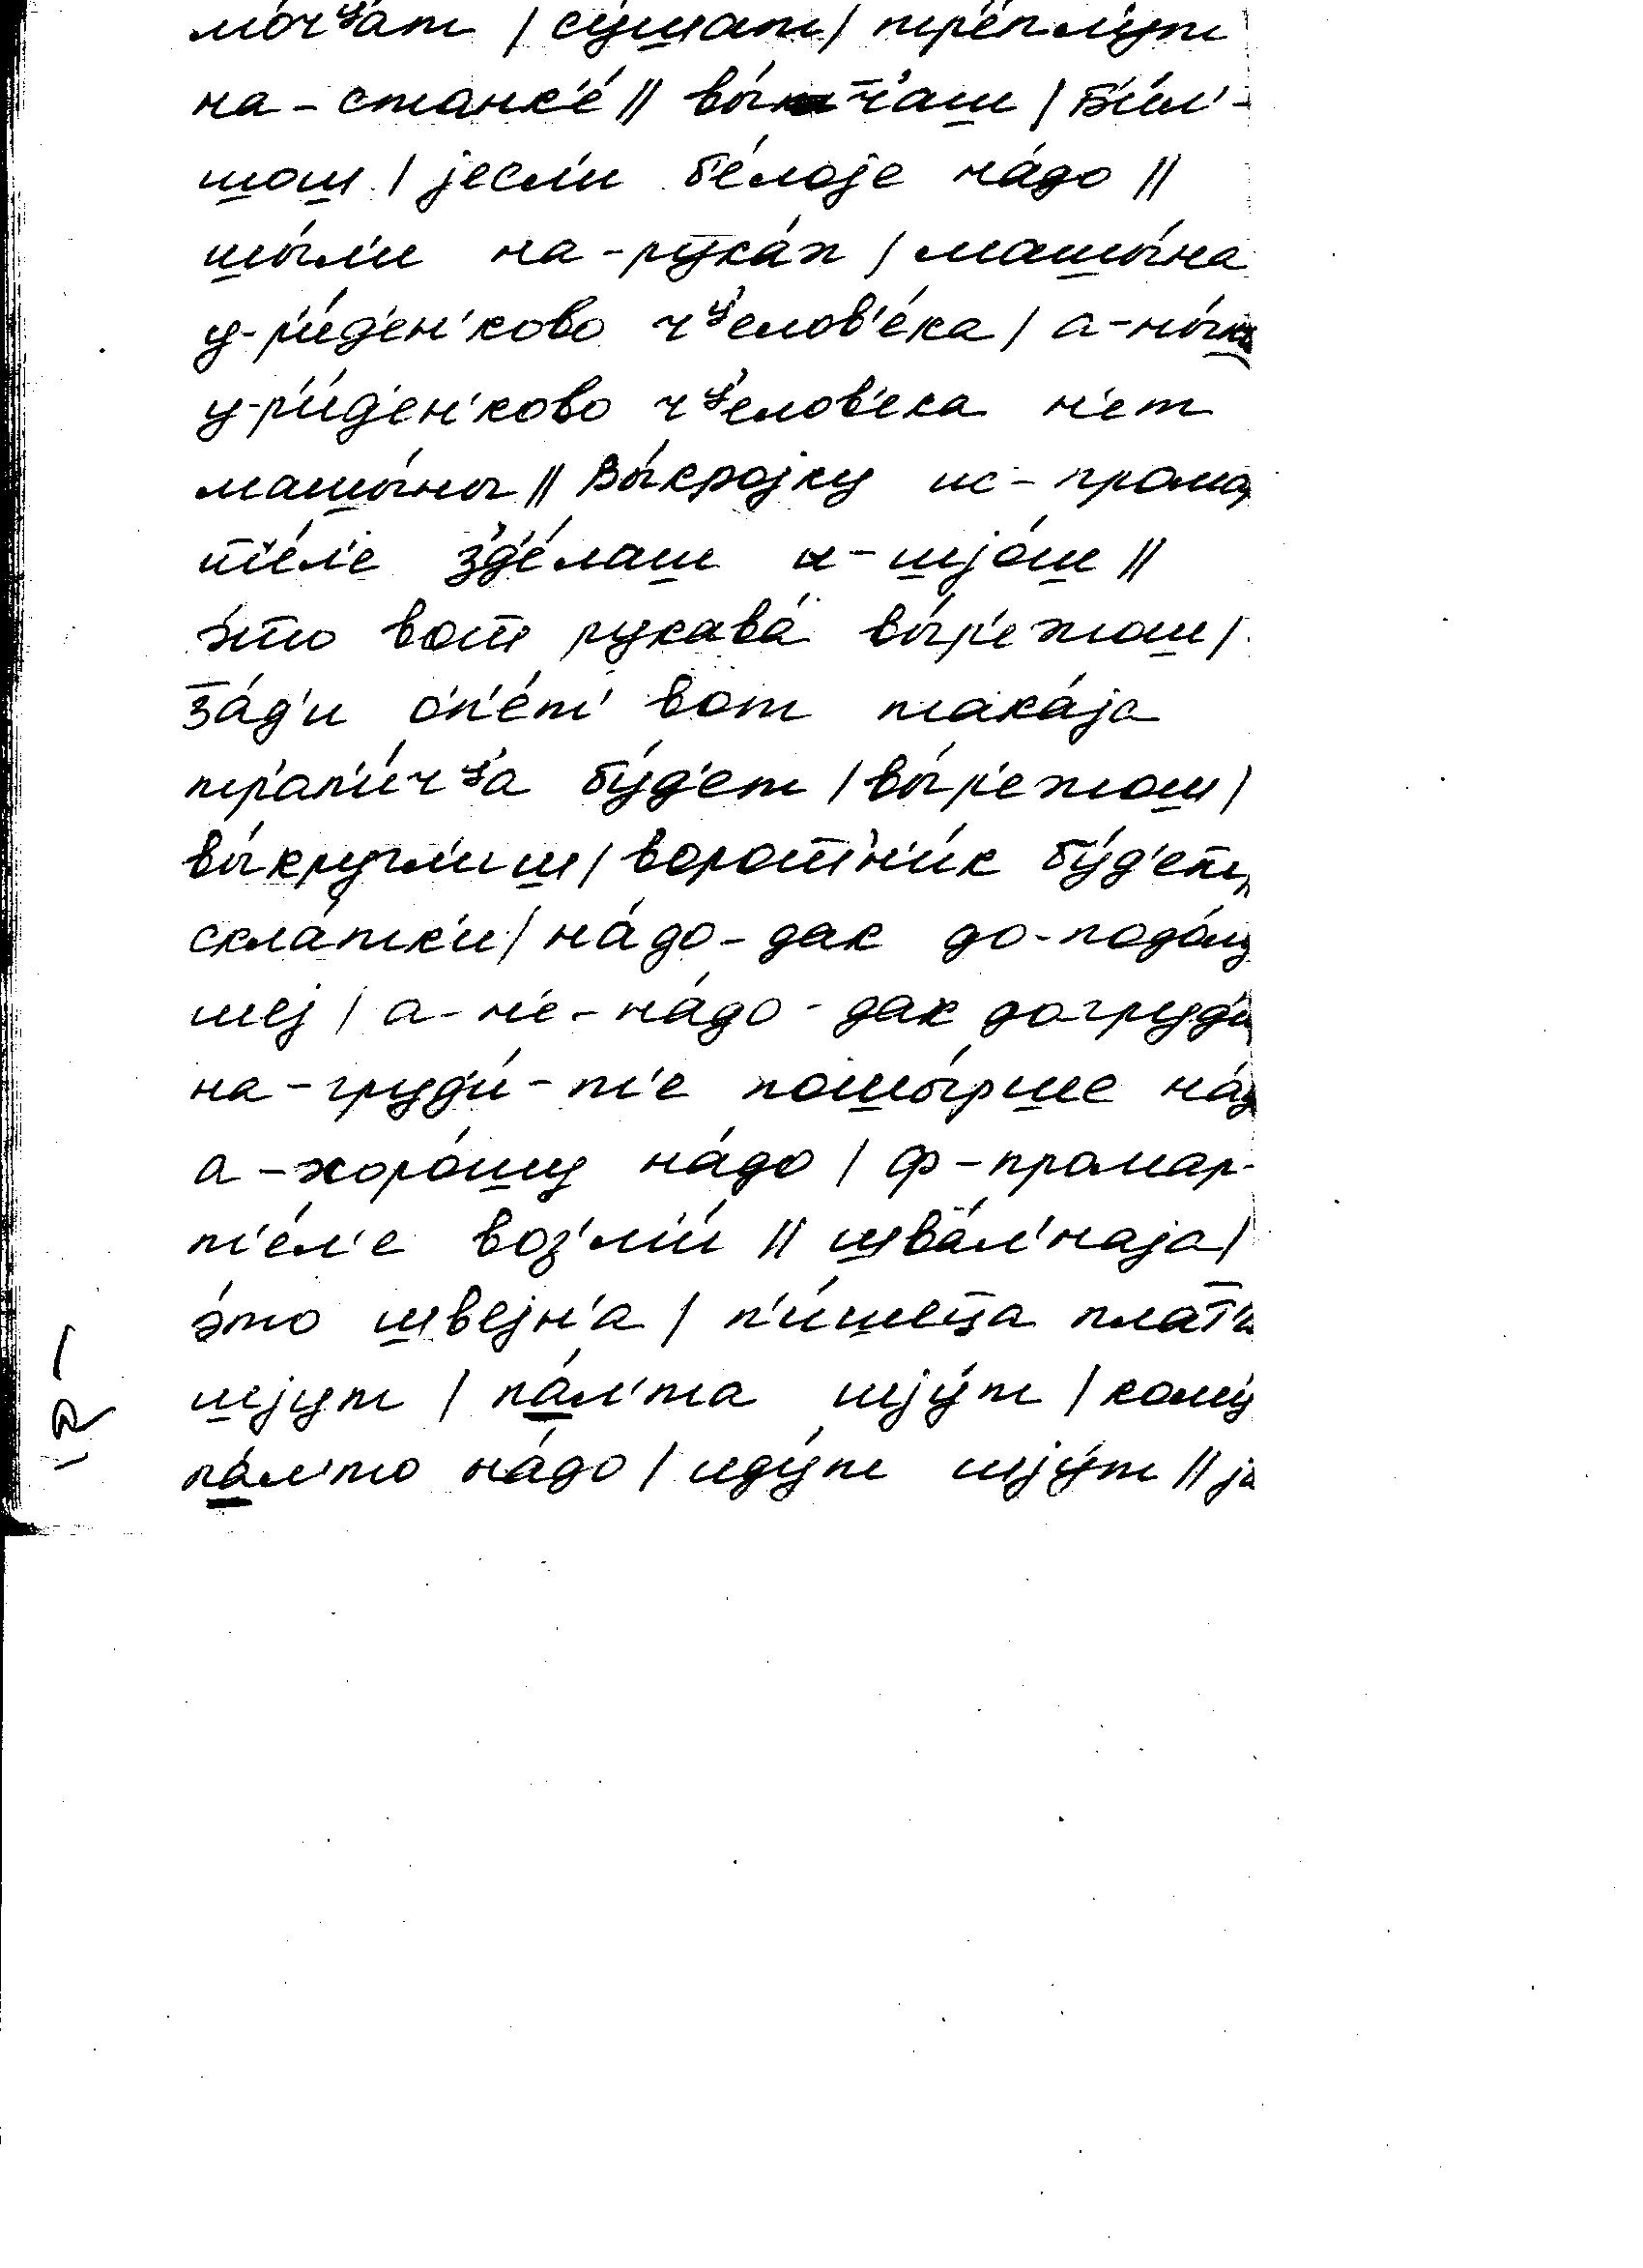 мо́чᶣ'ат / су́шат / тр'е́пл'ут
на-станк'е́ // вы́тч'аш / б'е́л'-
шош / јесл'и б'е́лоје на́до //
шы́л'и на-рука́х / машы́на
у-р'и́д'ен'ково чᶣ'елов'е́ка / а-ны́н'
у-р'и́д'ен'ково чᶣ'елов'е́ка н'ет
машы́ны // вы́кројку ис-прома
т'е́л'е зд'е́лаш и-шјо́ш //
э́то вот рукава́ вы́р'ежош /
за́д'и оп'е́т' вот така́ја
тр'ап'и́чᶣ'а бу́д'ет / вы́р'ежош /
вы́кругл'иш / воротн'и́к бу́д'ет,
скла́тк'и / на́до-дак до-подо́лу
шеј / а-н'е-на́до-дак до-груд'и́
на-груд'и́-т'е пошы́рше на́д
а-хоро́шу на́до / ф-промар-
т'е́л'е воз'м'и́ // шва́л'наја /
э́то швејн'а / п'и́шеца пла́т'и
шјут / па́л'та шју́т / кому́
па́л'то на́до / иду́т шју́т // ја